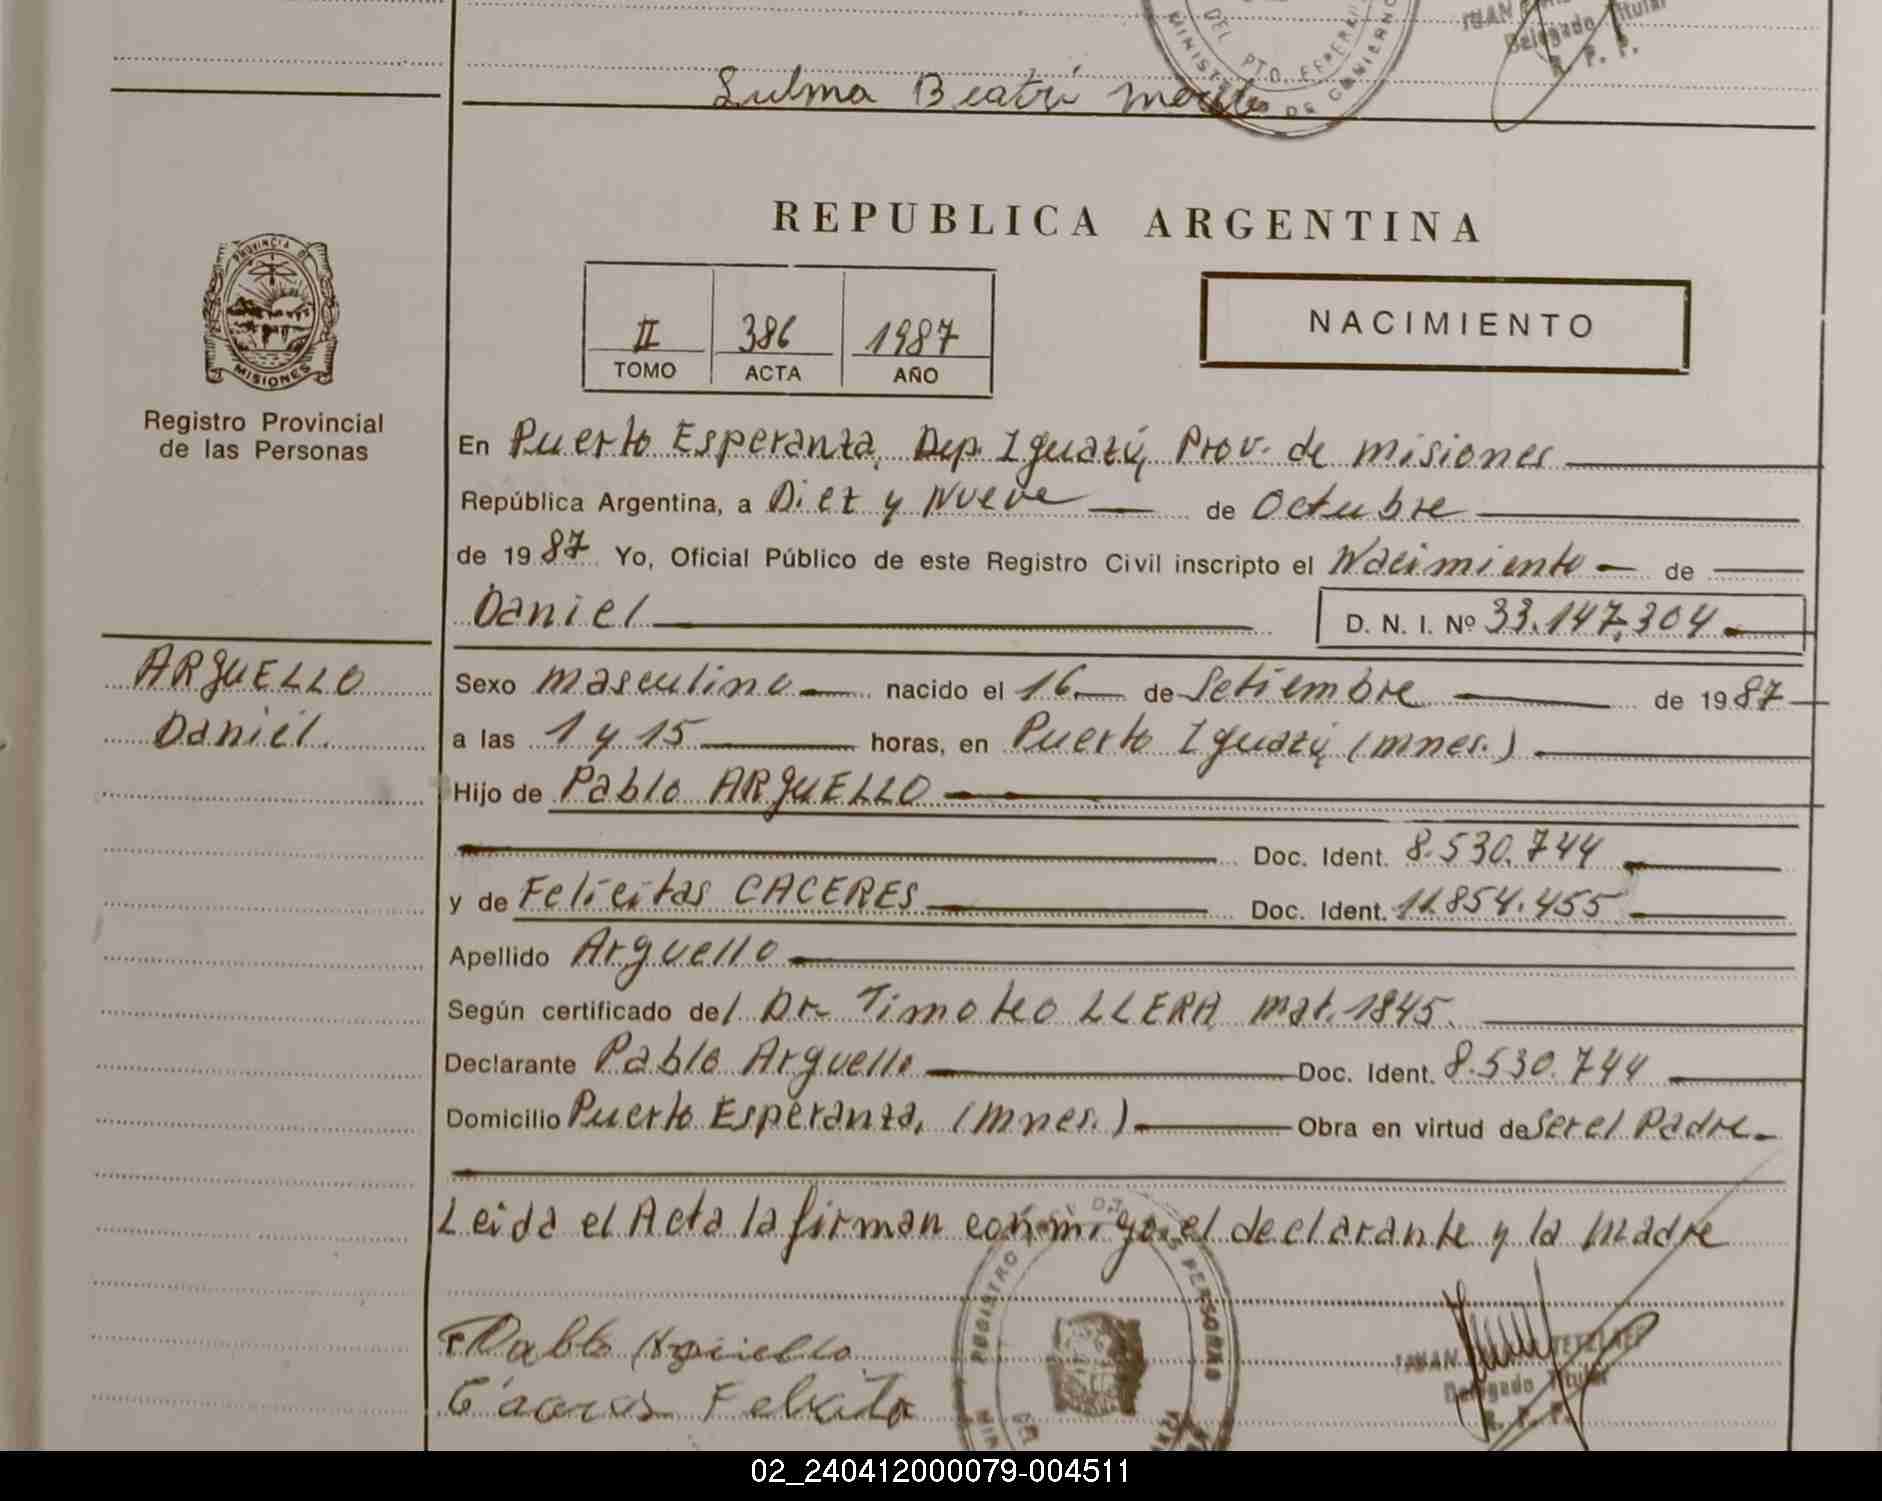 MINISTERIO DE GOBIERNO
DEL PTO. ESPERANZA
JUAN
Delegado Titular
R. P. P.
Sulma Beatri
REPUBLICA ARGENTINA
PROVINCIA DE
MISIONES
Registro Provincial
de las Personas
II 386 1987
TOMO ACTA AÑO
NACIMIENTO
En Puerto Esperanza, Dep. Iguazú, Prov. de misiones
República Argentina, a Diez y Nueve de Octubre
de 1987 Yo, Oficial Público de este Registro Civil inscripto el Nacimiento de
Daniel D. N. I. Nº 33.147.304
ARGUELLO
Daniel.
Sexo masculino nacido el 16 de Setiembre de 1987
a las 1 y 15 horas, en Puerto Iguazú (mnes.)
Hijo de Pablo ARGUELLO
Doc. Ident. 8.530.744
y de Felicitas CACERES Doc. Ident. 11.854.455
Apellido Arguello
Según certificado del Dr. Timoteo LLERA mat. 1845.
Declarante Pablo Arguello Doc. Ident. 8.530.744
Domicilio Puerto Esperanza, (mnes.) Obra en virtud de ser el Padre
Leida el Acta la firman conmigo, el declarante y la madre
REGISTRO PERSONAS
Pablo Arguello
JUAN TETZLAFF
Delegado Titular
R. P. P.
Cáceres Felicita
02_240412000079-004511